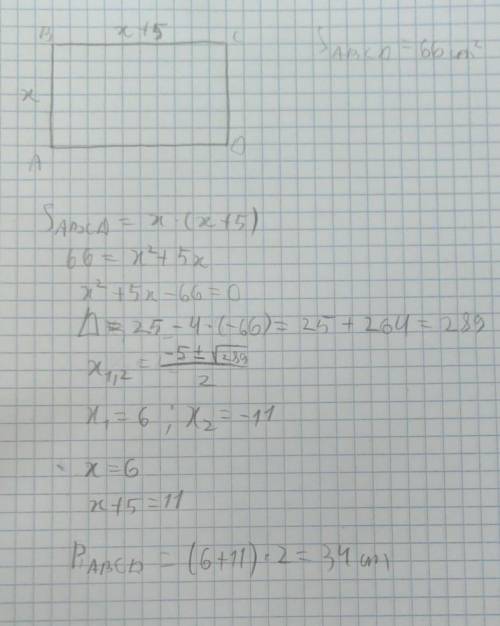 B x+5 C
S_ABCD = 66 cm²
x
A D
S_ABCD = x · (x+5)
66 = x² + 5x
x² + 5x - 66 = 0
D = 25 - 4 · (-66) = 25 + 264 = 289
x₁,₂ = (-5 ± √289) / 2
x₁ = 6 ; x₂ = -11
x = 6
x+5 = 11
P_ABCD = (6+11) · 2 = 34 cm